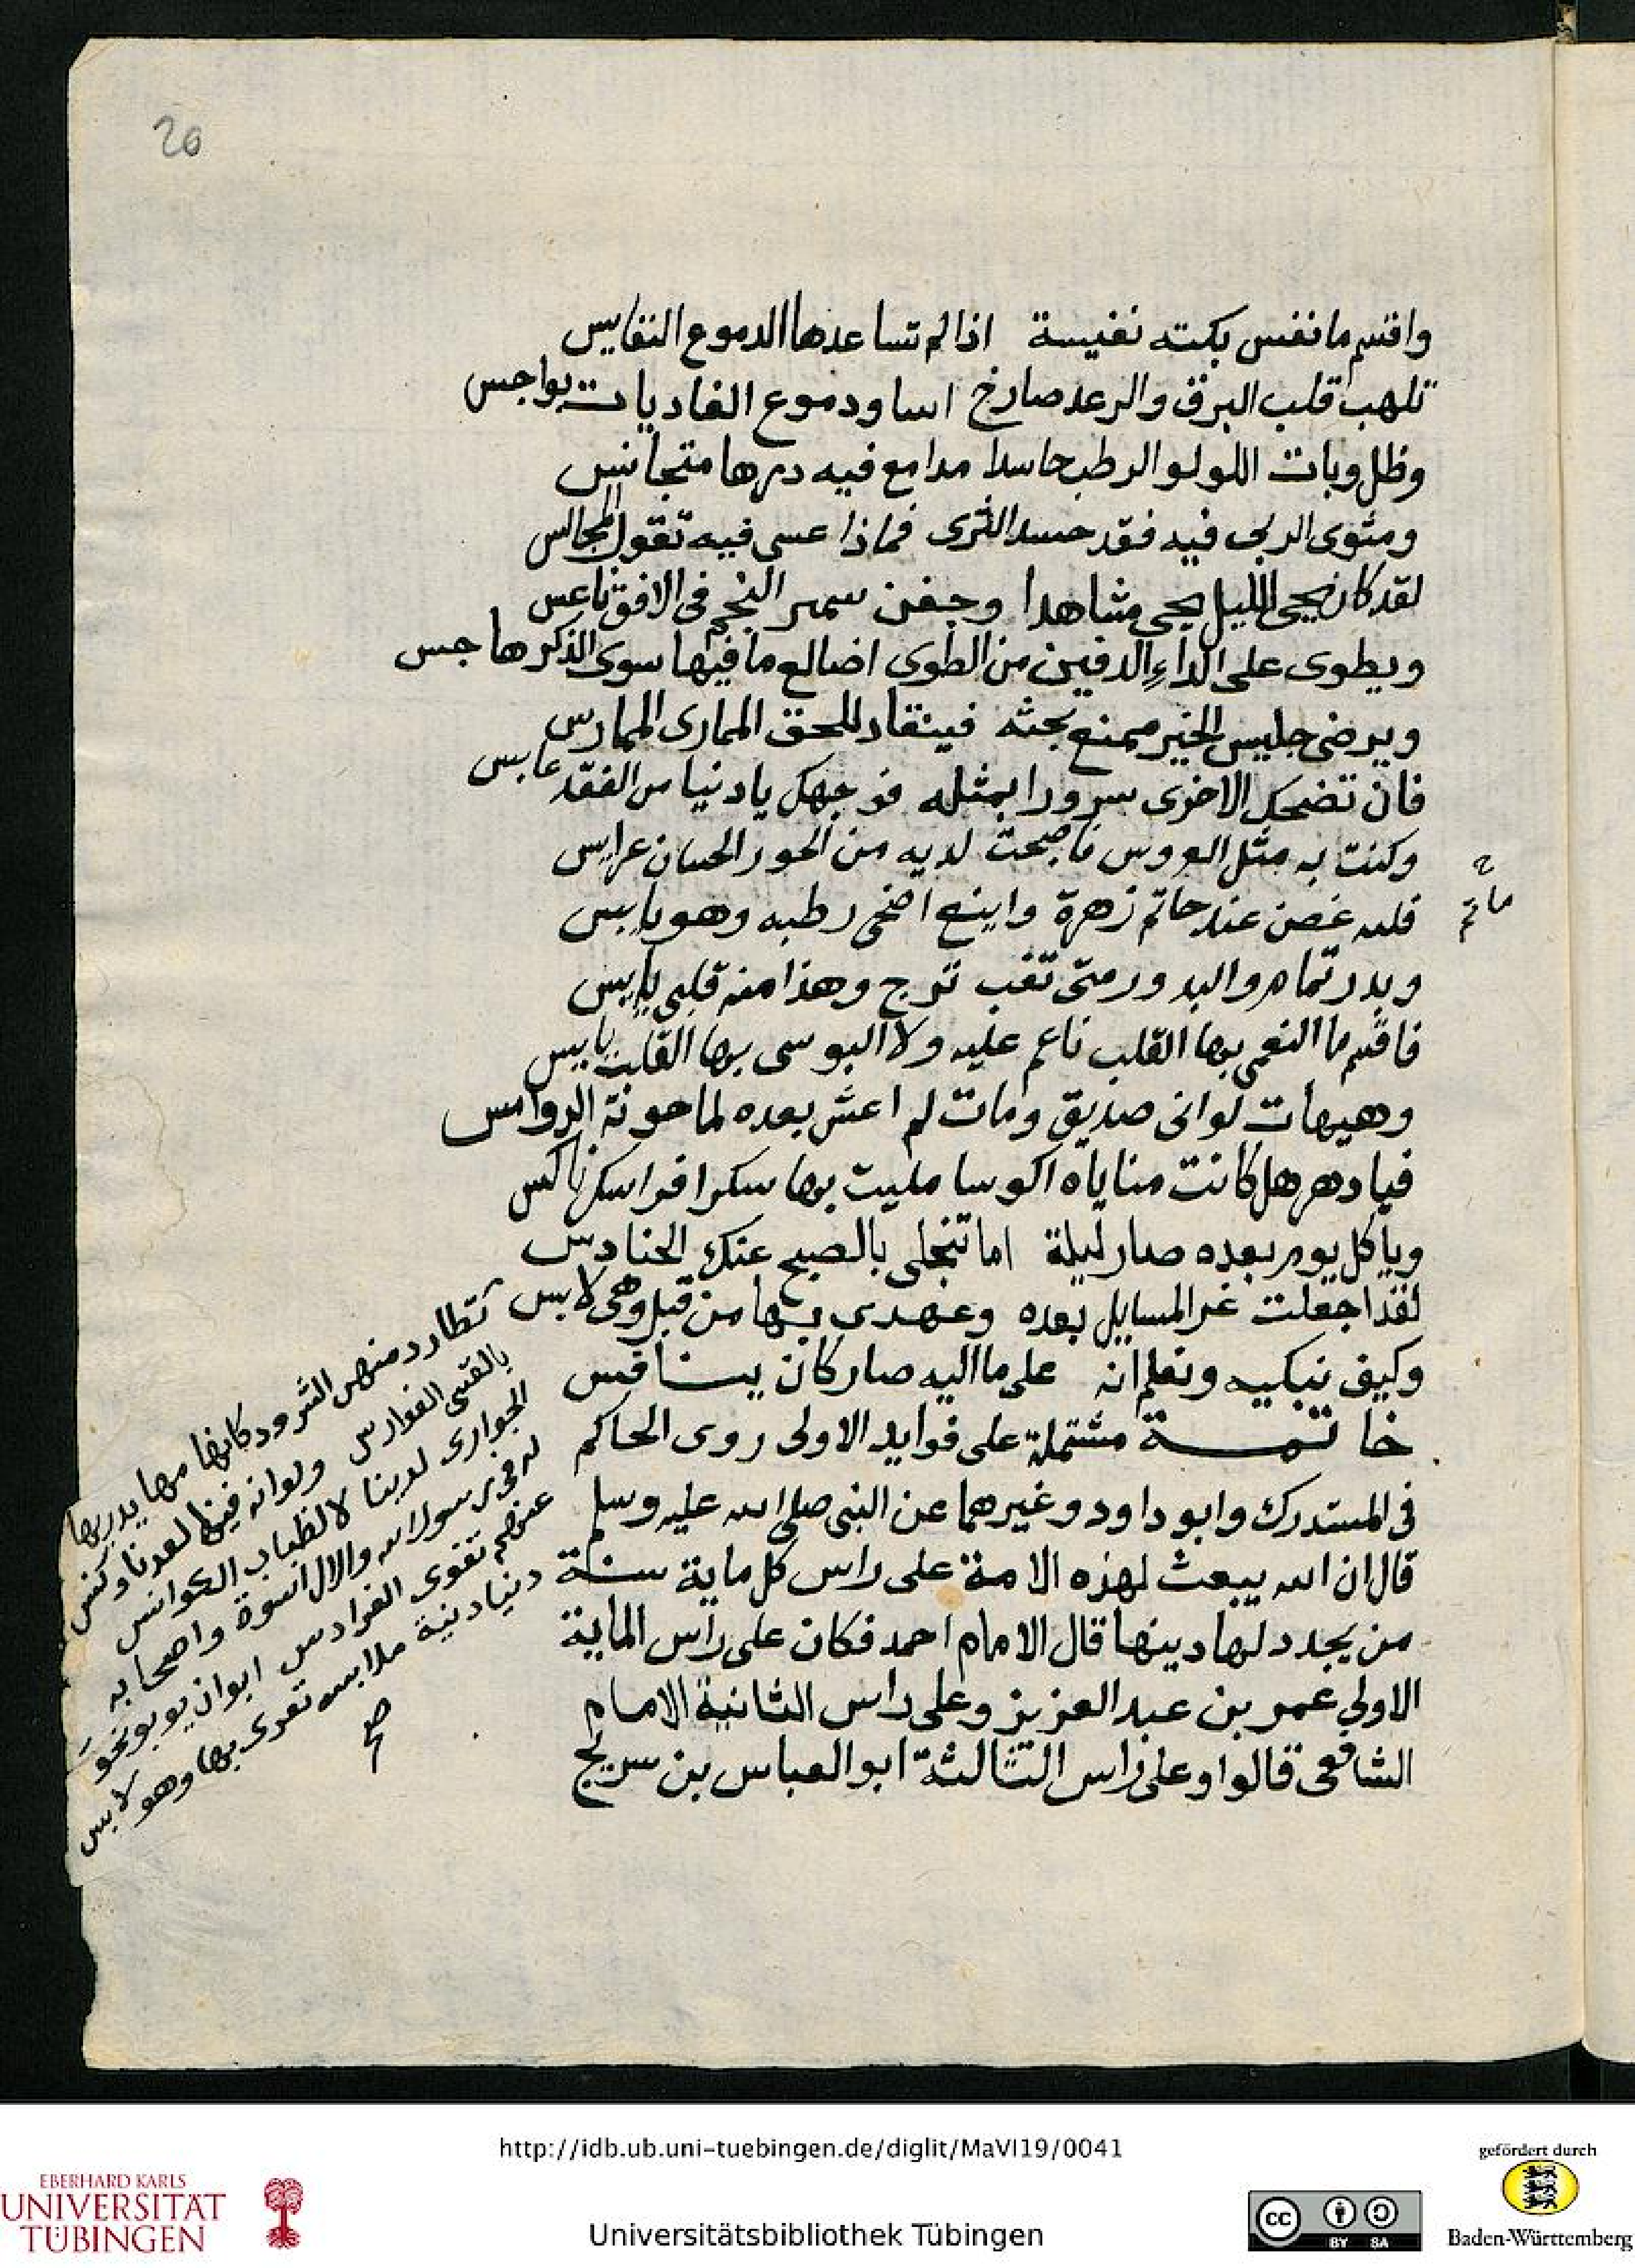 20
واقسم ما نفس بكته نفيسة اذا لم تساعدها الدموع النفايس
تلهب قلب البرق والرعد صارخ اسا ودموع الغاديات بواجس
وظل وبات اللولو الرطب حاسدا مدامع فيه درها متجانس
ومثوى الربى فيه فقد حسد الثرى فماذا عسى فيه تقول المجالس
لقد كان يحيى الليل يحيى مشاهدا وجفن سمير النجم فى الافق ناعس
ويطوى على الداء الدفين من الطوى اضالع ما فيها سوى الذكر هاجس
ويرضى جليس الخير ممتع بحثه فينقاد للحق الممارى الممارس
فان تضحك الاخرى سرورا بمثله فوجهك يا دنيا من الفقد عابس
وكنت به مثل العروس فاصبحت لديه من الحور الحسان عرايس
فلله غصن عند حاتم زهرة واينع اضحى رطبه وهو يابس
ماتم
وبدر تمام والبدور متى تغب ترج وهذا منه قلبى يايس
فاقسم ما النعمى بها القلب ناعم عليه ولا البوسى بها القلب بايس
وهيهات لو انى صديق ومات لم اعش بعده لما حوته الروامس
فيا دهر هل كانت مناياه اكوسا مليت بها سكرا فراسك ناكس
ويا كل يوم بعده صار ليلة اما تنجلى بالصبح عنك الحنادس
لقد اجعلت غر المسايل بعده وعهدى بها من قبل وهى لابس
وكيف نبكيه ونعلم انه على ما اليه صار كان ينافس
خاتمـــة مشتملة على فوايد الاولى روى الحاكم
فى المستدرك وابو داود وغيرهما عن النبى صلى الله عليه وسلم
قال ان الله يبعث لهذه الامة على راس كل ماية سنة
من يجدد لها دينها قال الامام احمد فكان على راس الماية
الاولى عمر بن عبد العزيز وعلى راس الثانية الامام
الشافعى قالوا وعلى راس الثالثة ابو العباس بن سريج
تطارد منهن الشرود كانها مها يدريها
بالقسى الفوارس ولو انه فينا لعدنا وكنس
الجوارى لدينا لا الظباب الكوانس
له فى رسول الله والال اسوة واصحابه
عنهم تقوى الفرادس
دنيا دنية ملابسه تعرى بها وهو لابس
صح
http://idb.ub.uni-tuebingen.de/diglit/MaVI19/0041
EBERHARD KARLS
UNIVERSITÄT
TÜBINGEN
Universitätsbibliothek Tübingen
cc BY SA
gefördert durch
Baden-Württemberg